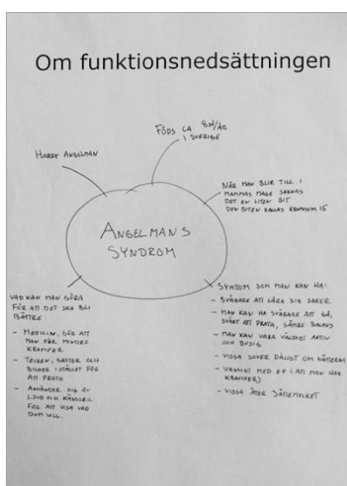 Om funktionsnedsättningen
FÖDS CA 8ST/ÅR
I SVERIGE
HARRY ANGELMAN
NÄR MAN BLIR TILL I
MAMMAS MAGE SAKNAS
DET EN LITEN BIT
DEN BITEN KALLAS KROMOSOM 15
ANGELMANS
SYNDROM
VAD KAN MAN GÖRA
FÖR ATT DET SKA BLI
BÄTTRE:
- MEDICIN, GÖR ATT
MAN FÅR MINDRE
KRAMPER
- TECKEN, GESTER OCH
BILDER ISTÄLLET FÖR
ATT PRATA
- ANVÄNDER SIG AV
LJUD OCH KÄNSLOR
FÖR ATT VISA VAD
DOM VILL.
SYMTOM SOM MAN KAN HA:
- SVÅRARE ATT LÄRA SIG SAKER
- MAN KAN HA SVÅRARE ATT GÅ,
SVÅRT ATT PRATA, SÄMRE BALANS
- MAN KAN VARA VÄLDIGT AKTIV
OCH BUSIG
- VISSA SOVER DÅLIGT OM NÄTTERNA
- VANLIGT MED EP (ATT MAN HAR
KRAMPER)
- VISSA ÄTER JÄTTEMYCKET